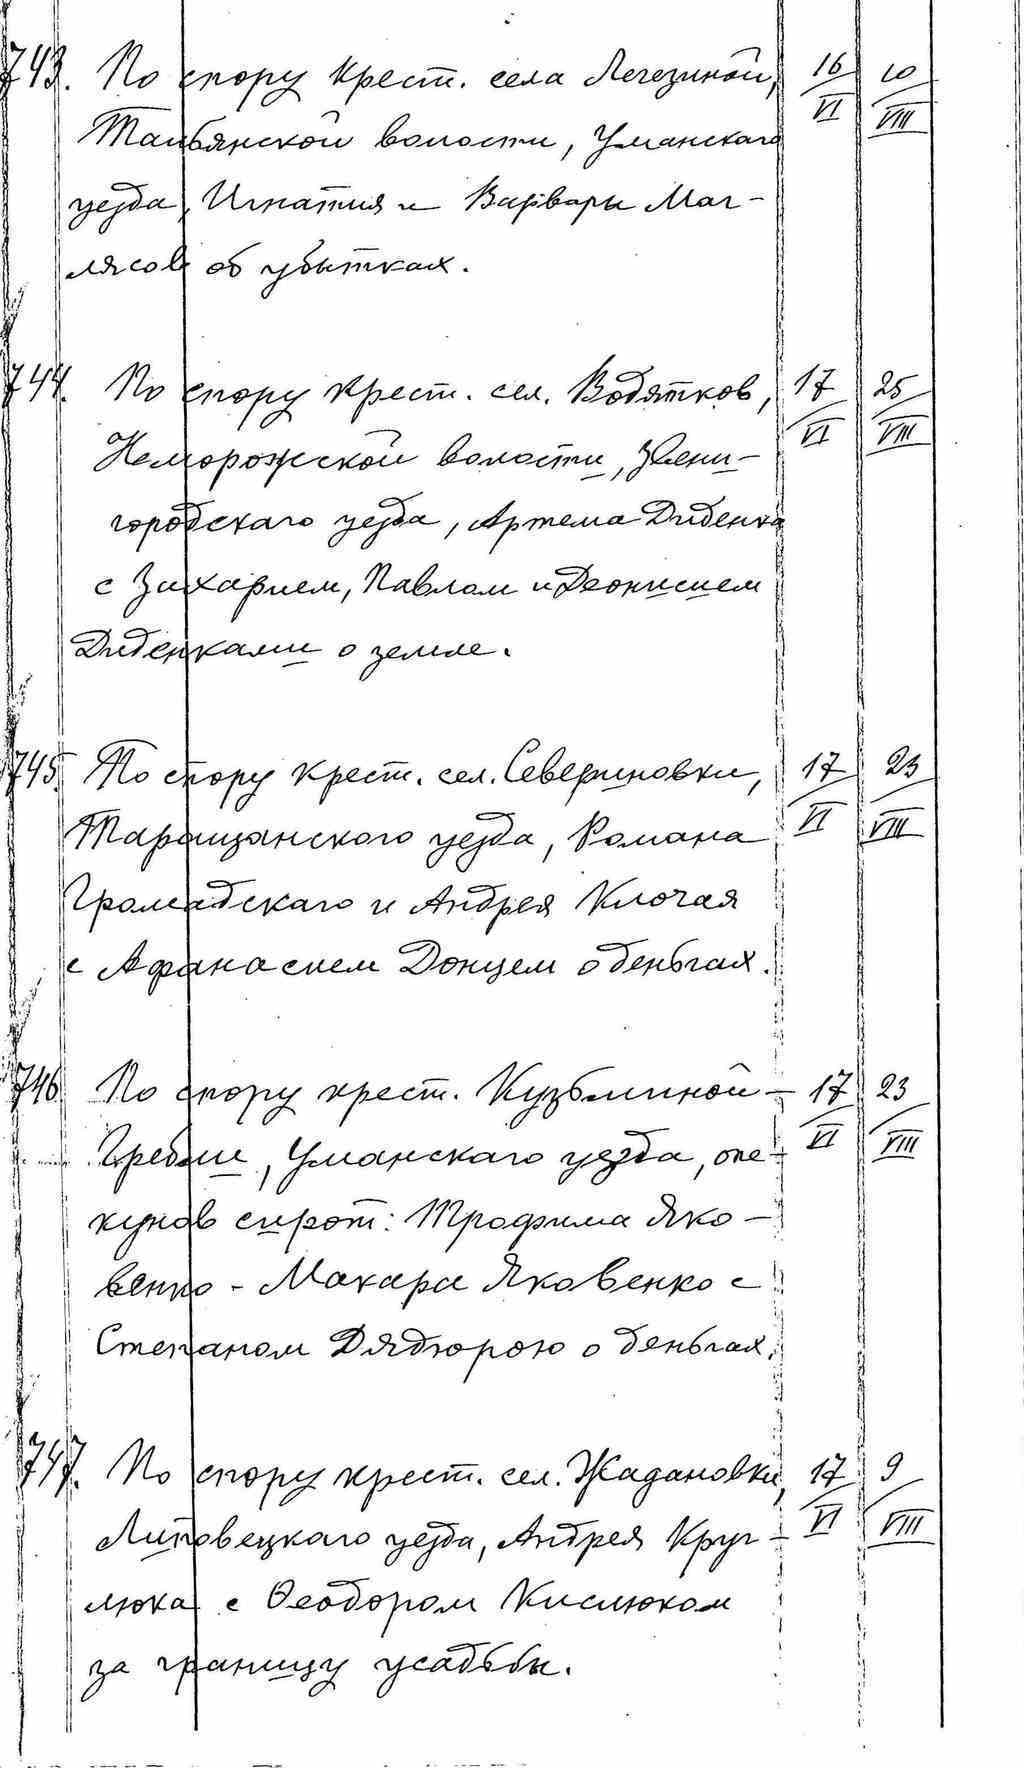 743. По спору крест. села Легезиной, 16/VI 10/VIII
Тальянской волости, Уманскаго
уезда, Игнатия и Варвары Маг-
лясов об убытках.
744. По спору крест. сел. Водятков, 17/VI 25/VIII
Неморожской волости, Звени-
городскаго уезда, Артема Диденка
с Захарием, Павлом и Деонисием
Диденками о земле.
745. По спору крест. сел. Севериновки, 17/VI 23/VIII
Таращанского уезда, Романа
Громадскаго и Андрея Клочая
с Афанасием Донцем о деньгах.
746. По спору крест. Кузьминой- 17/VI 23/VIII
Гребли, Уманскаго уезда, опе-
кунов сирот: Трофима Яко-
венко - Макара Яковенко с
Степаном Дядюрою о деньгах.
747. По спору крест. сел. Жадановки, 17/VI 9/VIII
Липовецкаго уезда, Андрея Круг-
люка с Феодором Кислюком
за границу усадьбы.